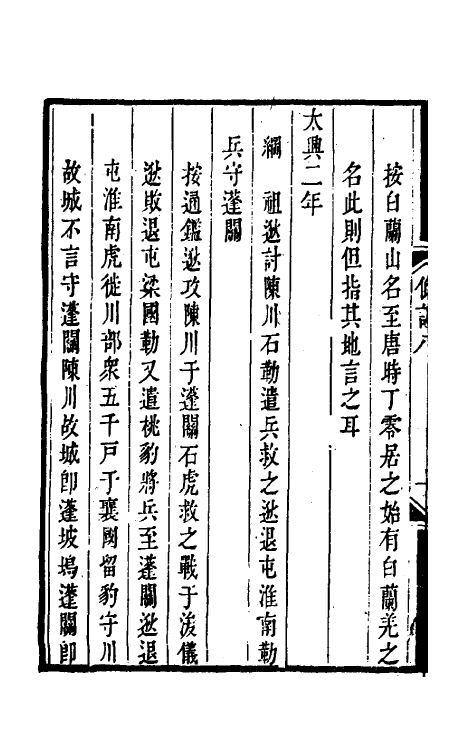 按白蘭山名至唐時丁零居之始有白蘭羌之
名此則但指其地言之耳
太興二年
綱　祖逖討陳川石勒遣兵救之逖退屯淮南勒
兵守蓬關
按通鑑逖攻陳川于蓬關石虎救之戰于浚儀
逖敗退屯梁國勒又遣桃豹將兵至蓬關逖退
屯淮南虎徙川部衆五千戸于襄國留豹守川
故城不言守蓬關陳川故城卽蓬坡塢蓬關卽